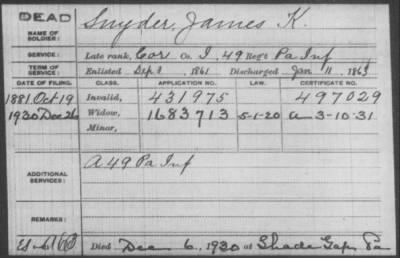 DEAD
NAME OF SOLDIER: Snyder, James K.
SERVICE: Late rank, Cor Co. I, 49 Reg't Pa Inf
TERM OF SERVICE: Enlisted Sep 9, 1861 Discharged Jan 11, 1863
DATE OF FILING. CLASS. APPLICATION NO. LAW. CERTIFICATE NO.
1881 Oct 19 Invalid, 431975 497029
1930 Dec 26 Widow, 1683713 5-1-20 a 3-10-31
Minor,
ADDITIONAL SERVICES: A 49 Pa Inf
REMARKS:
Died Dec 6, 1930 at Shade Gap Pa